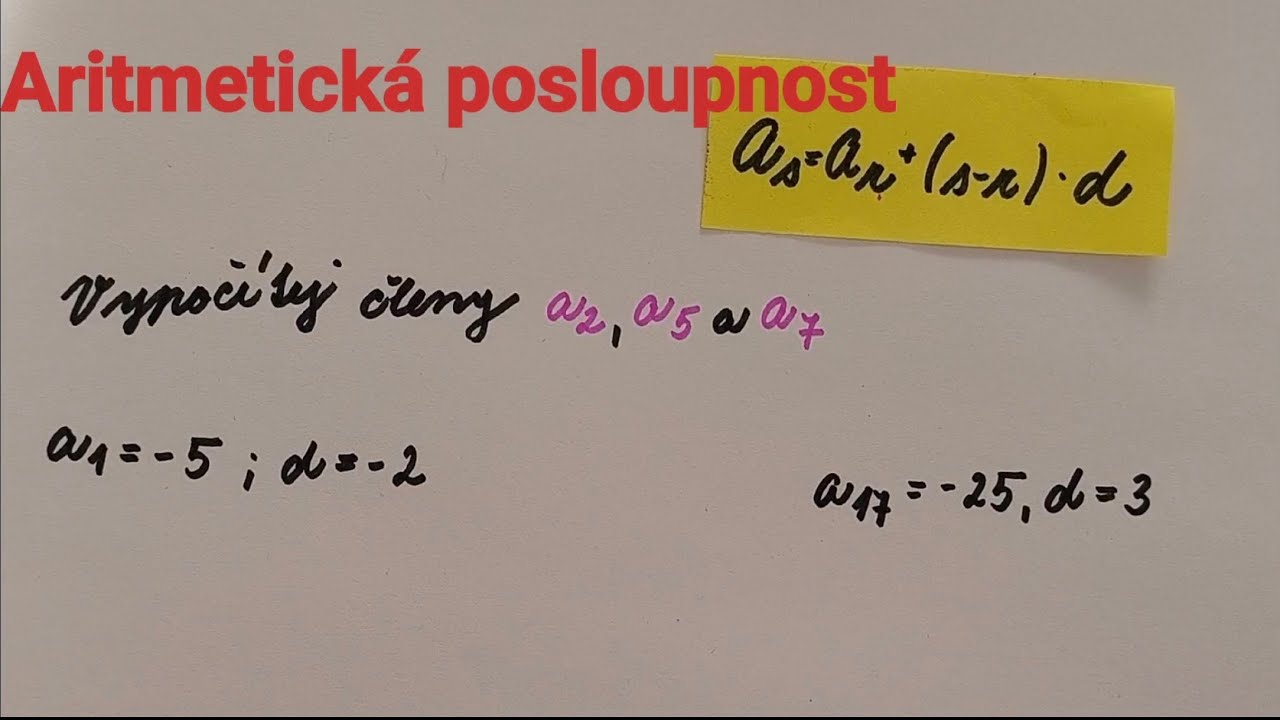 Aritmetická posloupnost
a_s = a_r + (s-r) · d
Vypočítej členy a_2, a_5 a a_7
a_1 = -5 ; d = -2
a_17 = -25, d = 3